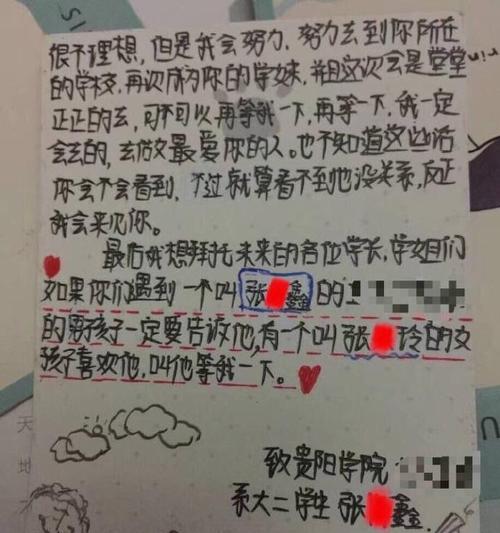 很不理想，但是我会努力，努力去到你所在
的学校，再次成为你的学妹，并且这次会是堂堂
正正的去，可不可以再等我一下，再等一下，我一定
会去的，去做最爱你的人。也不知道这些话
你会不会看到，不过就算看不到也没关系，反正
我会来见你。
最后我想拜托未来的各位学长，学姐们
如果你们遇到一个叫张鑫的
的男孩子一定要告诉他，有一个叫张玲的女
孩子喜欢他，叫他等我一下。
致贵阳学院
系大二学生张鑫
天
地